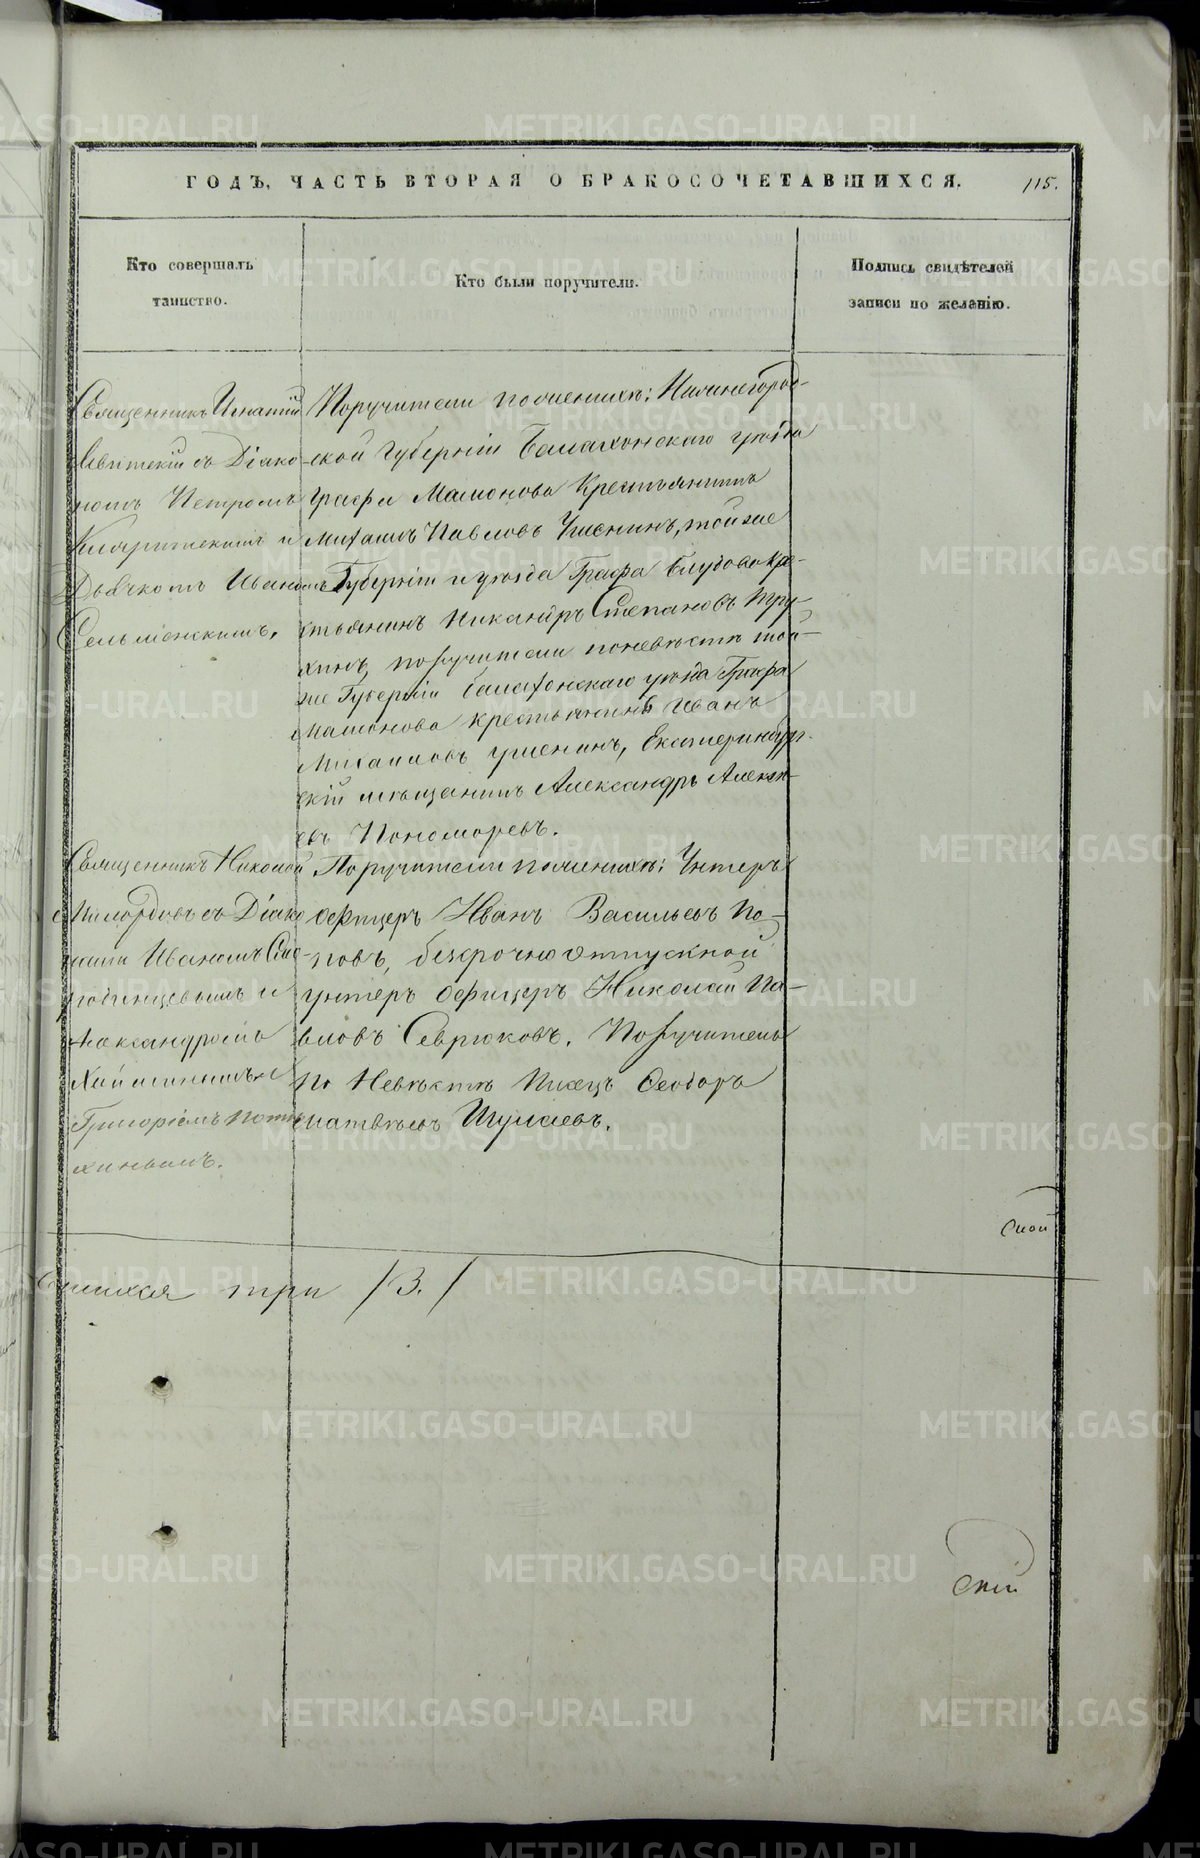 ГОДЪ, ЧАСТЬ ВТОРАЯ О БРАКОСОЧЕТАВШИХСЯ. 115.
Кто совершалъ
таинство.
Кто были поручители.
Подпись свидѣтелей
записи по желанію.
Священникъ Игнатій
съ Діако-
номъ Петромъ
и
Дьячкомъ Иваномъ
Сельменскимъ.
Поручители по женихѣ: Нижнегород-
ской губерніи Балахонскаго уѣзда
графа Мамонова Крестьянинъ
Михаилъ Павловъ Ушенинъ, той же
Губерніи и уѣзда Графа Блудова кре-
стьянинъ Никандръ Степановъ Тру-
хинъ, поручители по невѣстѣ той-
же Губерніи Балахонскаго уѣзда Графа
Мамонова крестьянинъ Иванъ
Михаиловъ Ушенинъ, Екатеринбург-
скій мѣщанинъ Александръ Алексѣ-
евъ Пономоревъ.
Священникъ Николай
съ Діако-
нами Иваномъ
и
Александромъ
и
Григоріемъ Поте-
хинымъ.
Поручители по женихѣ: Унтеръ
офицеръ Иванъ Васильевъ По-
повъ, безсрочно отпускной
унтеръ офицеръ Николай Па-
вловъ Севрюковъ. Поручитель
по Невѣстѣ Писецъ Ѳеодоръ
Матвѣевъ Шумаевъ.
ской
три /3./
скій
METRIKI.GASO-URAL.RU